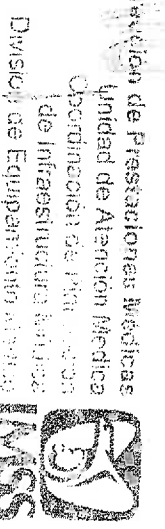 de Prestaciones Médicas
Unidad de Atención Médica
Coordinación de
de Infraestructura
División de Equipamiento
IMSS